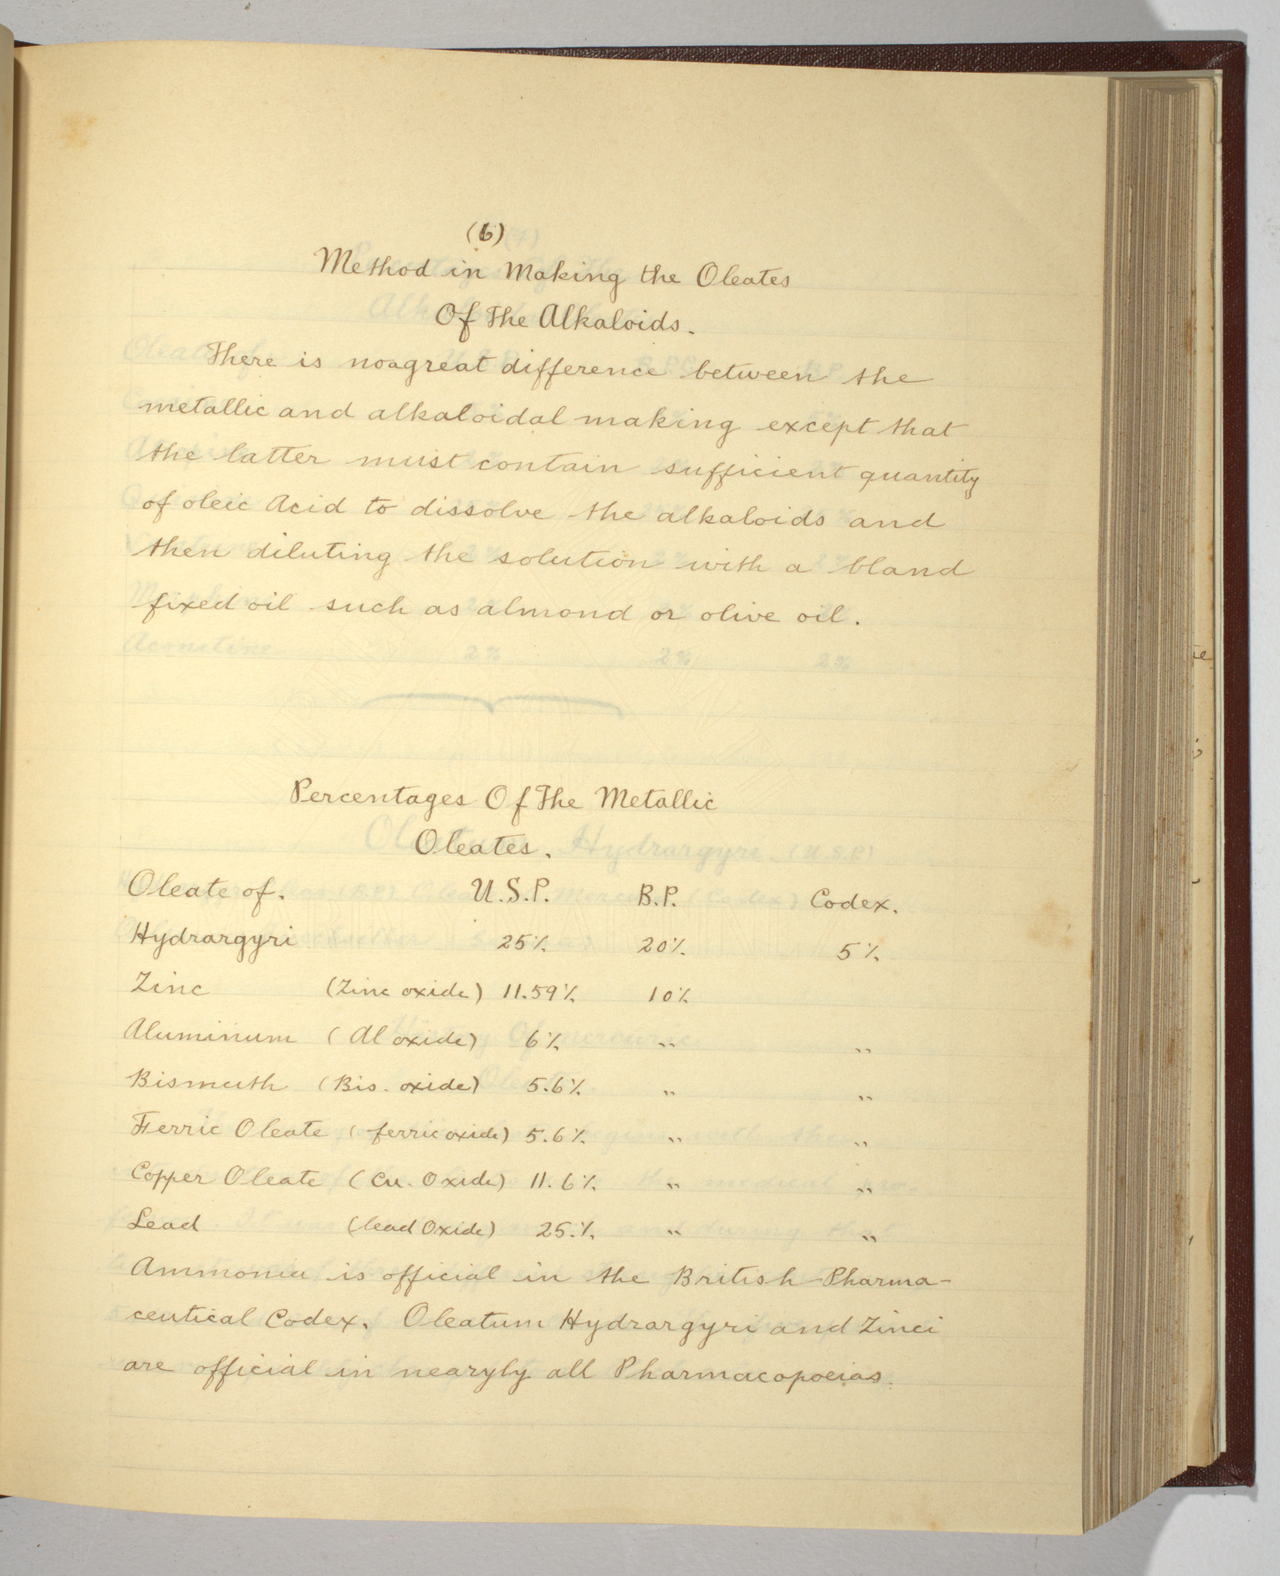 (6)
Method in Making the Oleates
Of The Alkaloids.
There is noagreat difference between the
metallic and alkaloidal making except that
the latter must contain sufficient quantity
of oleic Acid to dissolve the alkaloids and
then diluting the solution with a bland
fixed oil such as almond or olive oil.
Percentages Of The Metallic
Oleates.
Oleate of. U.S.P. B.P. Codex.
Hydrargyri 25% 20% 5%
Zinc (Zinc oxide) 11.59% 10%
Aluminum (Al oxide) 6% " "
Bismuth (Bis. oxide) 5.6% " "
Ferric Oleate (ferric oxide) 5.6% " "
Copper Oleate (Cu. Oxide) 11.6% " "
Lead (lead Oxide) 25.% " "
Ammonia is official in the British Pharma-
ceutical Codex. Oleatum Hydrargyri and Zinci
are official in nearyly all Pharmacopoeias.